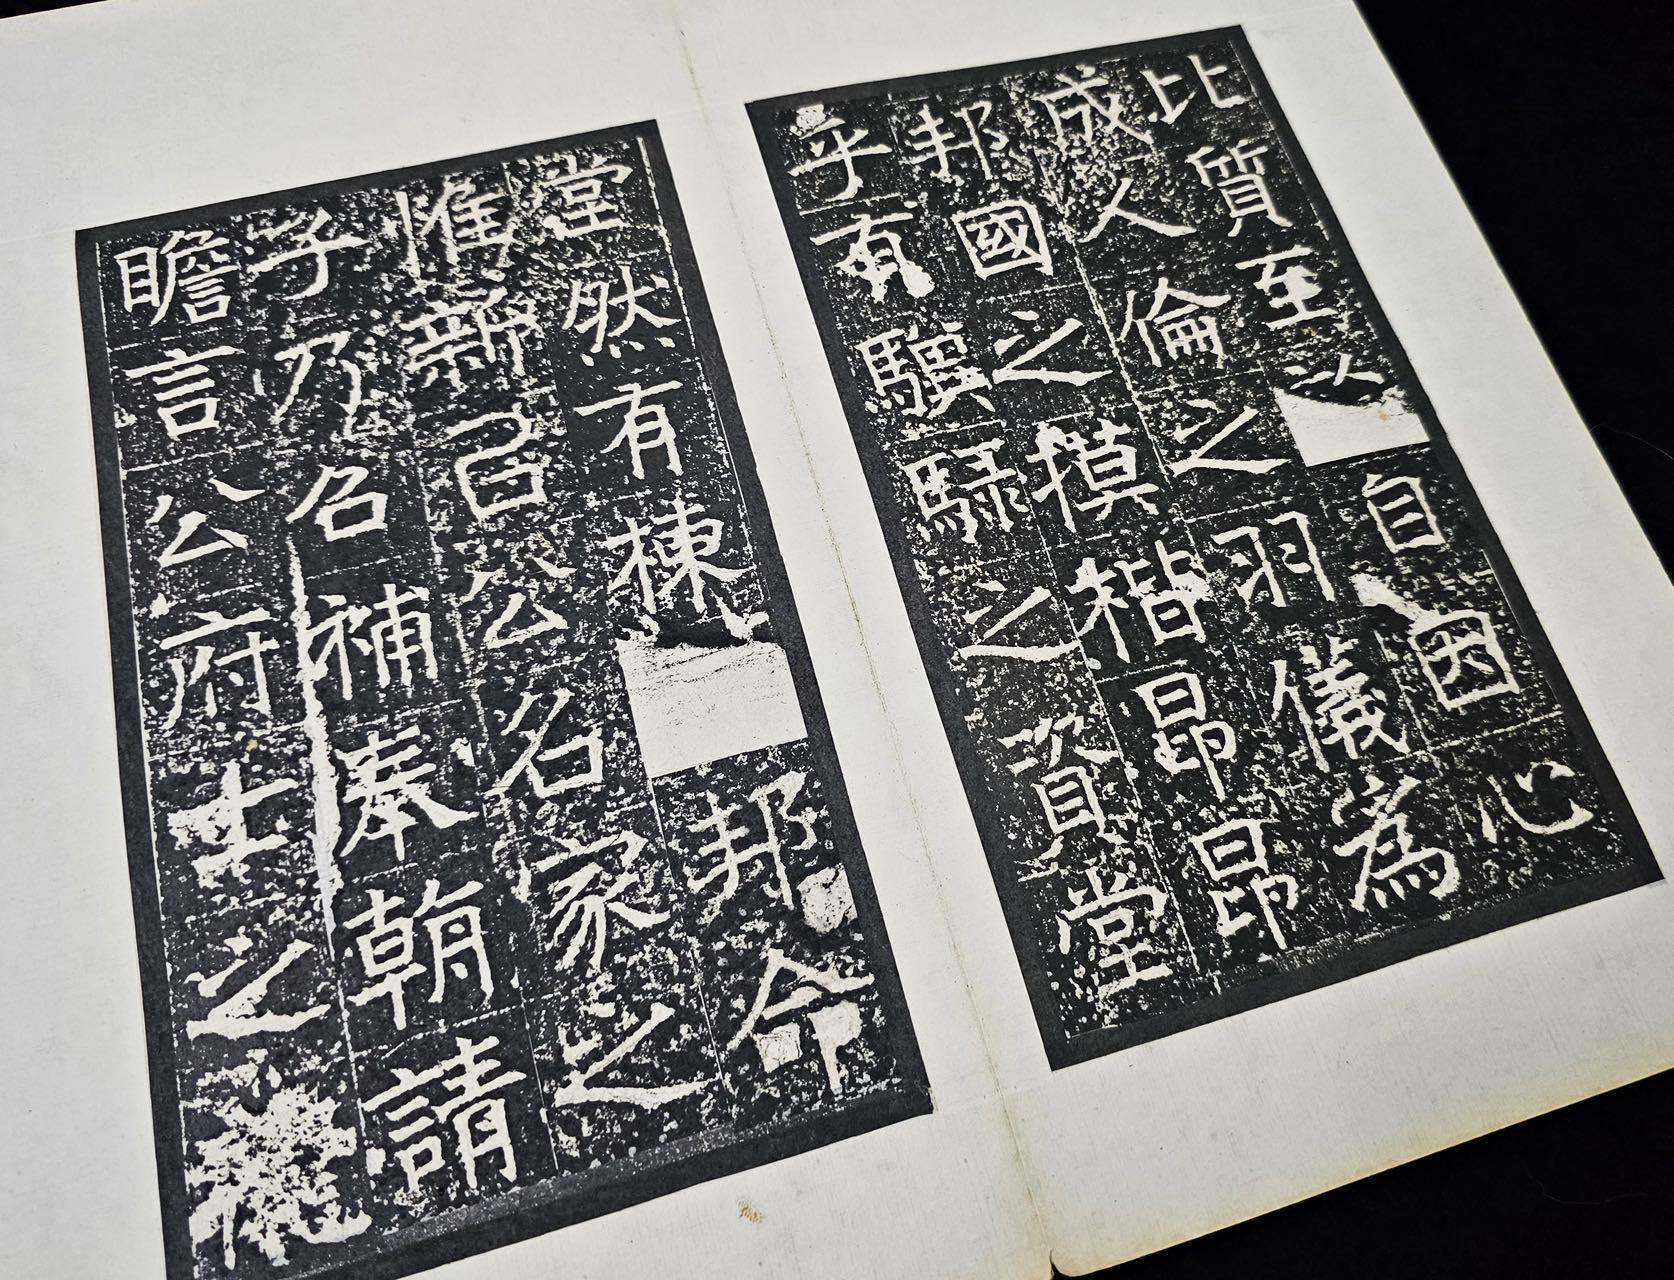 比質至自因心
成人倫之羽儀為
邦國之摸楷昂昂
乎有驥騄之資堂
堂然有棟邦命
惟新公名家之
子乃召補奉朝請
瞻言公府士之